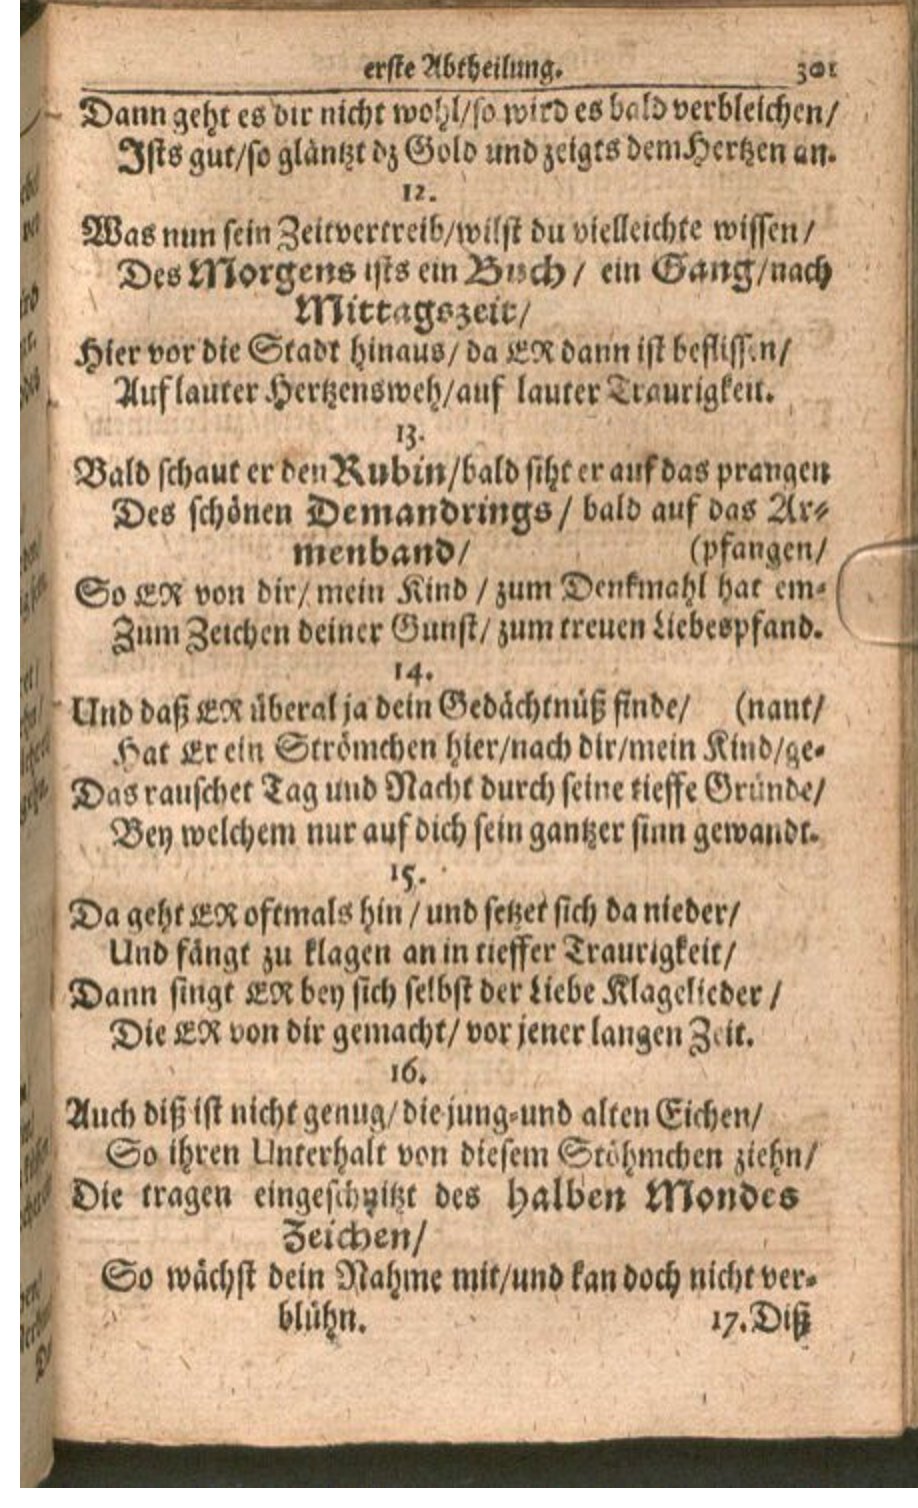 erste Abtheilung. 301
Dann geht es dir nicht wohl/so wird es bald verbleichen/
Ists gut/so gläntzt dz Gold und zeigts dem Hertzen an.
12.
Was nun sein Zeitvertreib/wilst du vielleichte wissen/
Des Morgens ists ein Buch/ ein Gang/nach
Mittagszeit/
Hier vor die Stadt hinaus/ da ER dann ist beflissen/
Auf lauter Hertzensweh/auf lauter Traurigkeit.
13.
Bald schaut er den Rubin/bald siht er auf das prangen
Des schönen Demandrings/ bald auf das Ar⸗
menband/ (pfangen/
So ER von dir/ mein Kind / zum Denkmahl hat em⸗
Zum Zeichen deiner Gunst/ zum treuen Liebespfand.
14.
Und daß ER überal ja dein Gedächtnüß finde/ (nant/
Hat Er ein Strömchen hier/nach dir/mein Kind/ge⸗
Das rauschet Tag und Nacht durch seine tieffe Gründe/
Bey welchem nur auf dich sein gantzer sinn gewandt.
15.
Da geht ER oftmals hin / und setzet sich da nieder/
Und fängt zu klagen an in tieffer Traurigkeit/
Dann singt ER bey sich selbst der Liebe Klagelieder /
Die ER von dir gemacht/ vor jener langen Zeit.
16.
Auch diß ist nicht genug/ die jung⸗und alten Eichen/
So ihren Unterhalt von diesem Stöhmchen ziehn/
Die tragen eingeschnitzt des halben Mondes
Zeichen/
So wächst dein Nahme mit/und kan doch nicht ver⸗
blühn. 17. Diß